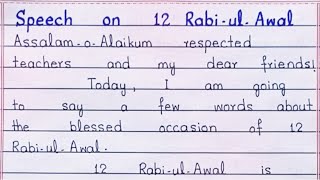 Speech on 12 Rabi-ul-Awal
Assalam-o-Alaikum respected
teachers and my dear friends!
Today, I am going
to say a few words about
the blessed occasion of 12
Rabi-ul-Awal.
12 Rabi-ul-Awal is